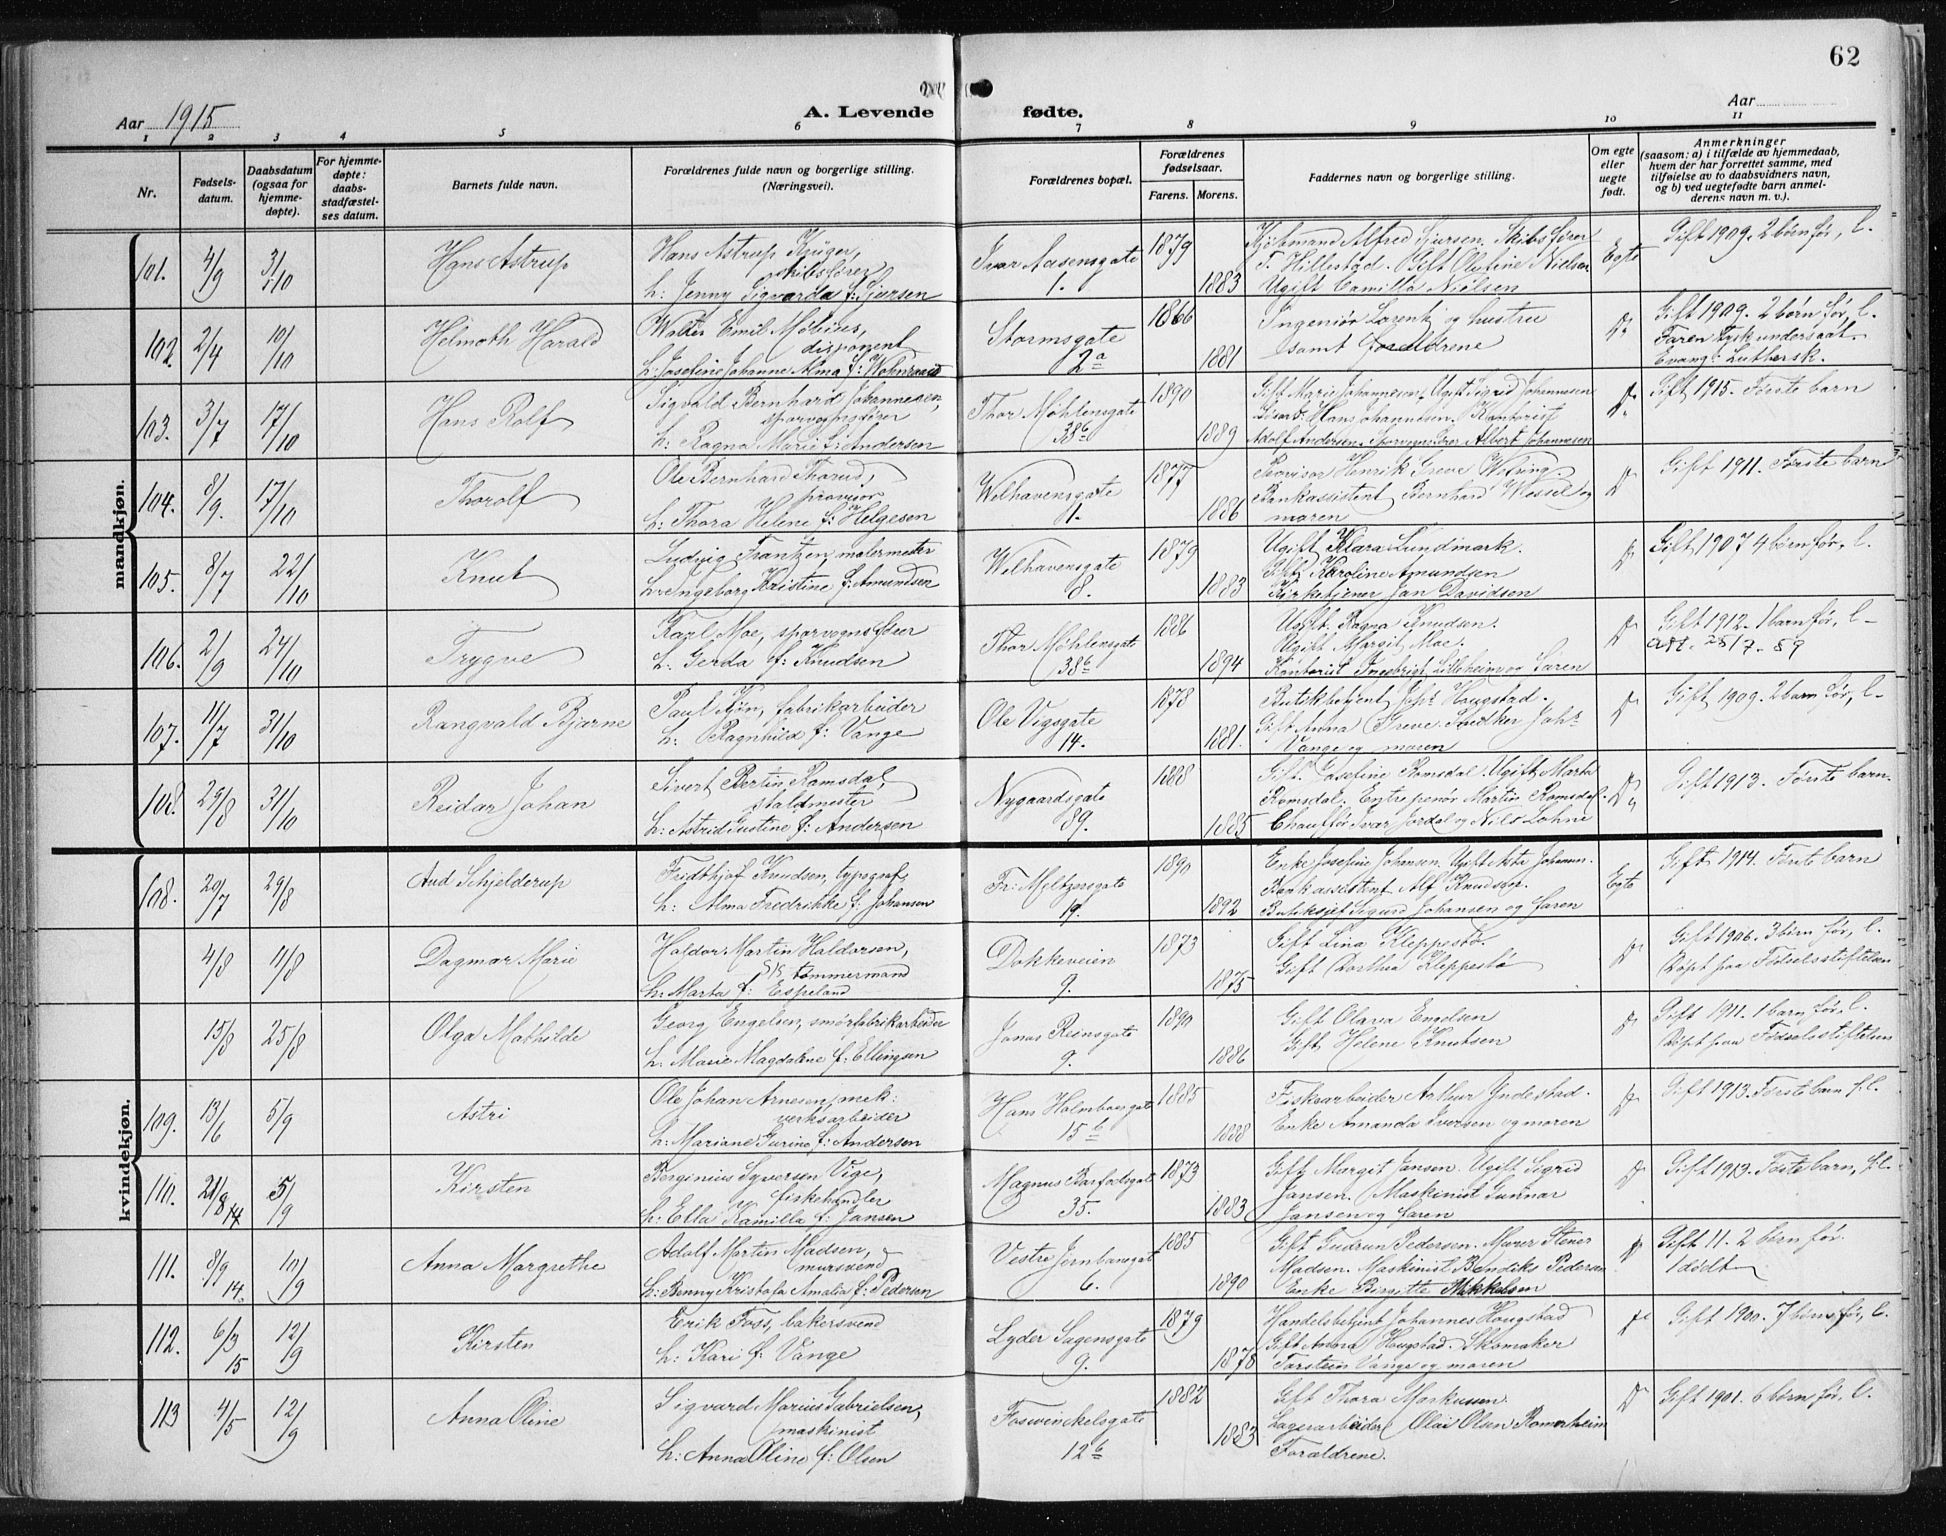 62
Aar 1915
A. Levende fødte.
Aar
1 2 3 4 5 6 7 8 9 10 11
Nr.
Fødsels-
datum.
Daabsdatum
(ogsaa for
hjemme-
døpte).
For hjemme-
døpte:
daabs-
stadfæstel-
ses datum.
Barnets fulde navn.
Forældrenes fulde navn og borgerlige stilling.
(Næringsvei).
Forældrenes bopæl.
Forældrenes
fødselsaar.
Farens. Morens.
Faddernes navn og borgerlige stilling.
Om egte
eller
uegte
født.
Anmerkninger
(saasom: a) i tilfælde av hjemmedaab,
hvem der har forrettet samme, med
tilføielse av to daabsvidners navn,
og b) ved uegtefødte barn anmel-
derens navn m. v.).
mandkjøn.
101. 4/9 31/10 Hans Astrup
Hans Astrup Krüger,
skibsfører
h: Jenny Sigvarda f: Sjursen
Ivar Aasensgate
1.
1879 1883
Kjøbmand Alfred Sjursen. Skibsfører
T. Hillestad. Gift Olufine Nielsen
Ugift Camilla Nielsen
Egte
Gift 1909. 2 børn før, l.
102. 2/4 10/10 Helmoth Harald
Walter Emil
disponent
h: Josefine Johanne Alma f:
Stormsgate
2a
1866 1881
Ingeniør Lorentz og hustru
samt forældrene
Do
Gift 1909. 2 børn før, l.
Faren tysk undersaat.
Evang: Luthersk.
103. 3/7 17/10 Hans Rolf
Sigvald Bernhard Johannesen,
sporvognsfører
h: Ragna Marie f: Andersen
Thor Møhlensgate
38b
1890 1889
Gift Marie Johannesen, Ugift Sigrid Johannesen
Hans Johannesen. Kontorist
Adolf Andersen. Sporvognsfører Albert Johannesen
Do
Gift 1915. Første barn
104. 8/9. 17/10 Thorolf
Ole Bernhard Thorud,
provisor
h: Thora Helene f: Helgesen
Welhavensgate
1.
1877 1886
Provisor Henrik Greve
Bankassistent Bernhard Wessel og
moren
Do
Gift 1911. Første barn
105. 8/7 22/10 Knut
Ludvig Frantzen, malermester
h: Ingeborg Kristine f: Amundsen
Welhavensgate
8.
1879 1883
Ugift Klara Lundmark.
Gift Karoline Amundsen
Kirketjener Jan Davidsen
Do
Gift 1907 4 børn før, l.
106. 2/9 24/10 Trygve
Karl Moe, sporvognsfører
h: Gerda f: Knudsen
Thor Møhlensgate
38b
1886 1894
Ugift Ragna Knudsen.
Ugift Margit Moe.
Kontorist Ingebrigt Lilleheim og faren
Do
Gift 1912. 1 barn før, l
att. 28/7-59
107. 11/7 31/10 Rangvald Bjarne
Paul Kjøn, fabrikarbeider
h: Ragnhild f: Vange
Ole Vigsgate
14.
1878 1881.
Butikbetjent Johs Hougstad.
Gift Anna Greve. Snedker Johs
Vange og moren
Do
Gift 1909. 2 barn før, l
108. 29/8 31/10 Reidar Johan
Sivert Bertin Ramsdal,
staldmester
h: Astrid Gustine f: Andersen
Nygaardsgate
89.
1888 1885
Gift Josefine Romsdal. Ugift Marta
Romsdal. Entrepenør Martin Romsdal.
Chauffør Ivar Jordal og Nils Lohne
Do
Gift 1913. Første barn.
kvindekjøn.
108. 20/7 29/8 Aud Schjelderup
Fridthjof Knudsen, typograf
h: Alma Fredrikke f: Johansen
Fr: Meltzersgate
19.
1890 1892
Enke Josefine Johansen. Ugift Asta Johann.
Bankassistent Alf Knudsen.
Butikchef Sigurd Johansen og faren
Egte
Gift 1914. Første barn
4/8 11/8 Dagmar Marie
Haldor Martin Haldorsen,
S/S tømmermand
h: Marta f: Espeland
Dokkeveien
9.
1873 1875
Gift Lina Kleppestø.
Gift Dorthea Kleppestø
Do
Gift 1906. 3 børn før, l.
Døpt paa Fødselsstiftelsen
15/8 25/8 Olga Mathilde
Georg Engelsen, smørfabrikarbeider
h: Marie Magdalene f: Ellingsen
Jonas Reinsgate
9.
1890 1886
Gift Olava Engelsen
Gift Helene Knutsen
Do
Gift 1911. 1 barn før, l.
Døpt paa Fødselsstiftelsen
109. 13/6 5/9 Astri
Ole Johan Arnesen, mek:
verksarbeider
h: Mariane Gurine f: Andersen
Hans Holmboesgate
15b
1885 1888
Fiskearbeider Arthur Yndestad.
Enke Amanda Iversen og moren
Do
Gift 1913. Første barn f.l.
110. 21/8 14 5/9 Kirsten
Berginius Syversen Vige,
fiskehandler
h: Ella Kamilla f: Jansen
Magnus Barfodsgate
35.
1873 1883
Gift Margit Jansen. Ugift Sigrid
Jansen. Maskinist Gunnar
Jansen og faren
Do
Gift 1913. Første barn, f.l.
111. 8/9 14. 10/9 Anna Margrethe
Adolf Martin Madsen,
mursvend
h: Benny Kristofa Amalia f: Pedersen
Vestre Jernbanegate
6.
1885 1890
Gift Gudrun Pedersen. Murer Stener
Madsen. Maskinist Bendiks Pedersen
Enke Birgitte Mikkelsen
Do
Gift 11. 2 børn før.
1 dødt
112. 6/3 15 12/9 Kirsten
Erik Foss, bakersvend
h: Kari f: Vange
Lyder Sagensgate
9.
1879 1878
Handelsbetjent Johannes Hougstad
Gift Anna Hougstad. Skomaker
Torstein Vange og moren
Do
Gift 1900. 7 børn før, l.
113 4/5 12/9 Anna Oline
Sigvard Marius Gabrielsen,
maskinist
h: Anna Oline f: Olsen
Foswinckelsgate
12b
1882 1883
Gift Thora Markussen.
Lagerarbeider Olai Olsen Romerheim
Forældrene.
Do
Gift 1901. 6 børn før, l.